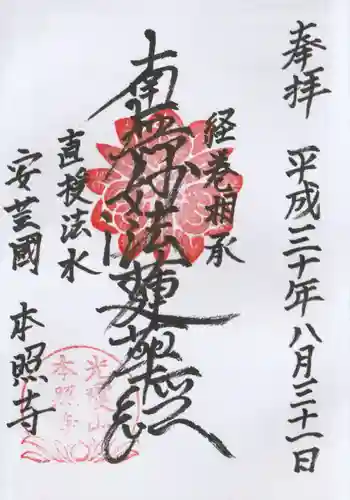 奉拝 平成三十年八月三十一日
経巻相承
南無妙法蓮華経
直授法水
安芸國 本照寺
光瑷山
本照寺